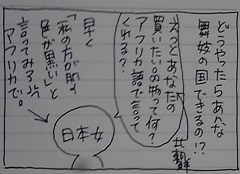 どうやったらあんな
舞妓の国できるの!?
えっとあなたの
買いたい品物って何?
アフリカ語で言って
くれる?
早く
「私の方が肌の
色が黒い」と
言ってみろよ
アフリカで。
日本女